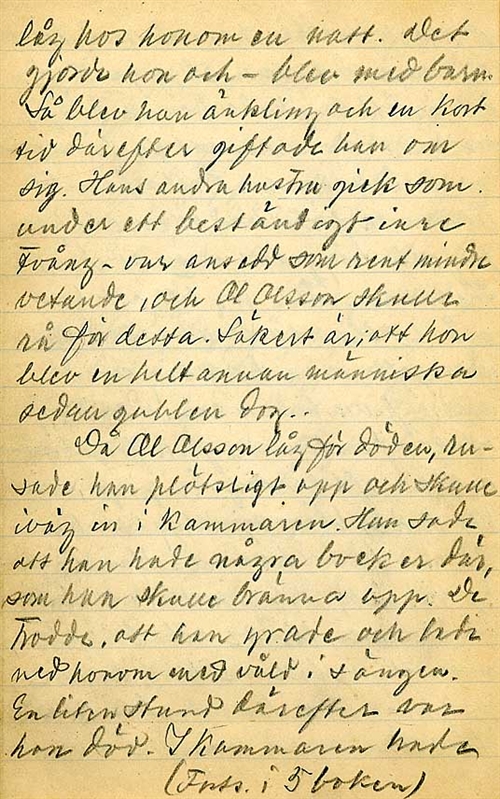 låg hos honom en natt. Det
gjorde hon och – blev med barn.
Så blev han änkling och en kort
tid därefter giftade han om
sig. Hans andra hustru gick som
under ett beständigt inre
tvång – var ansedd som rent mindre
vetande, och Ol Olsson skulle
rå för detta. Säkert är, att hon
blev en helt annan människa
sedan gubben dog..
Då Ol Olsson låg för döden, ru-
sade han plötsligt opp och skulle
iväg in i kammaren. Han sade
att han hade några böcker där,
som han skulle bränna opp. De
trodde, att han yrade och lade
ned honom med våld i sängen.
En liten stund därefter var
han död. I kammaren hade
(Forts. i 5 boken)